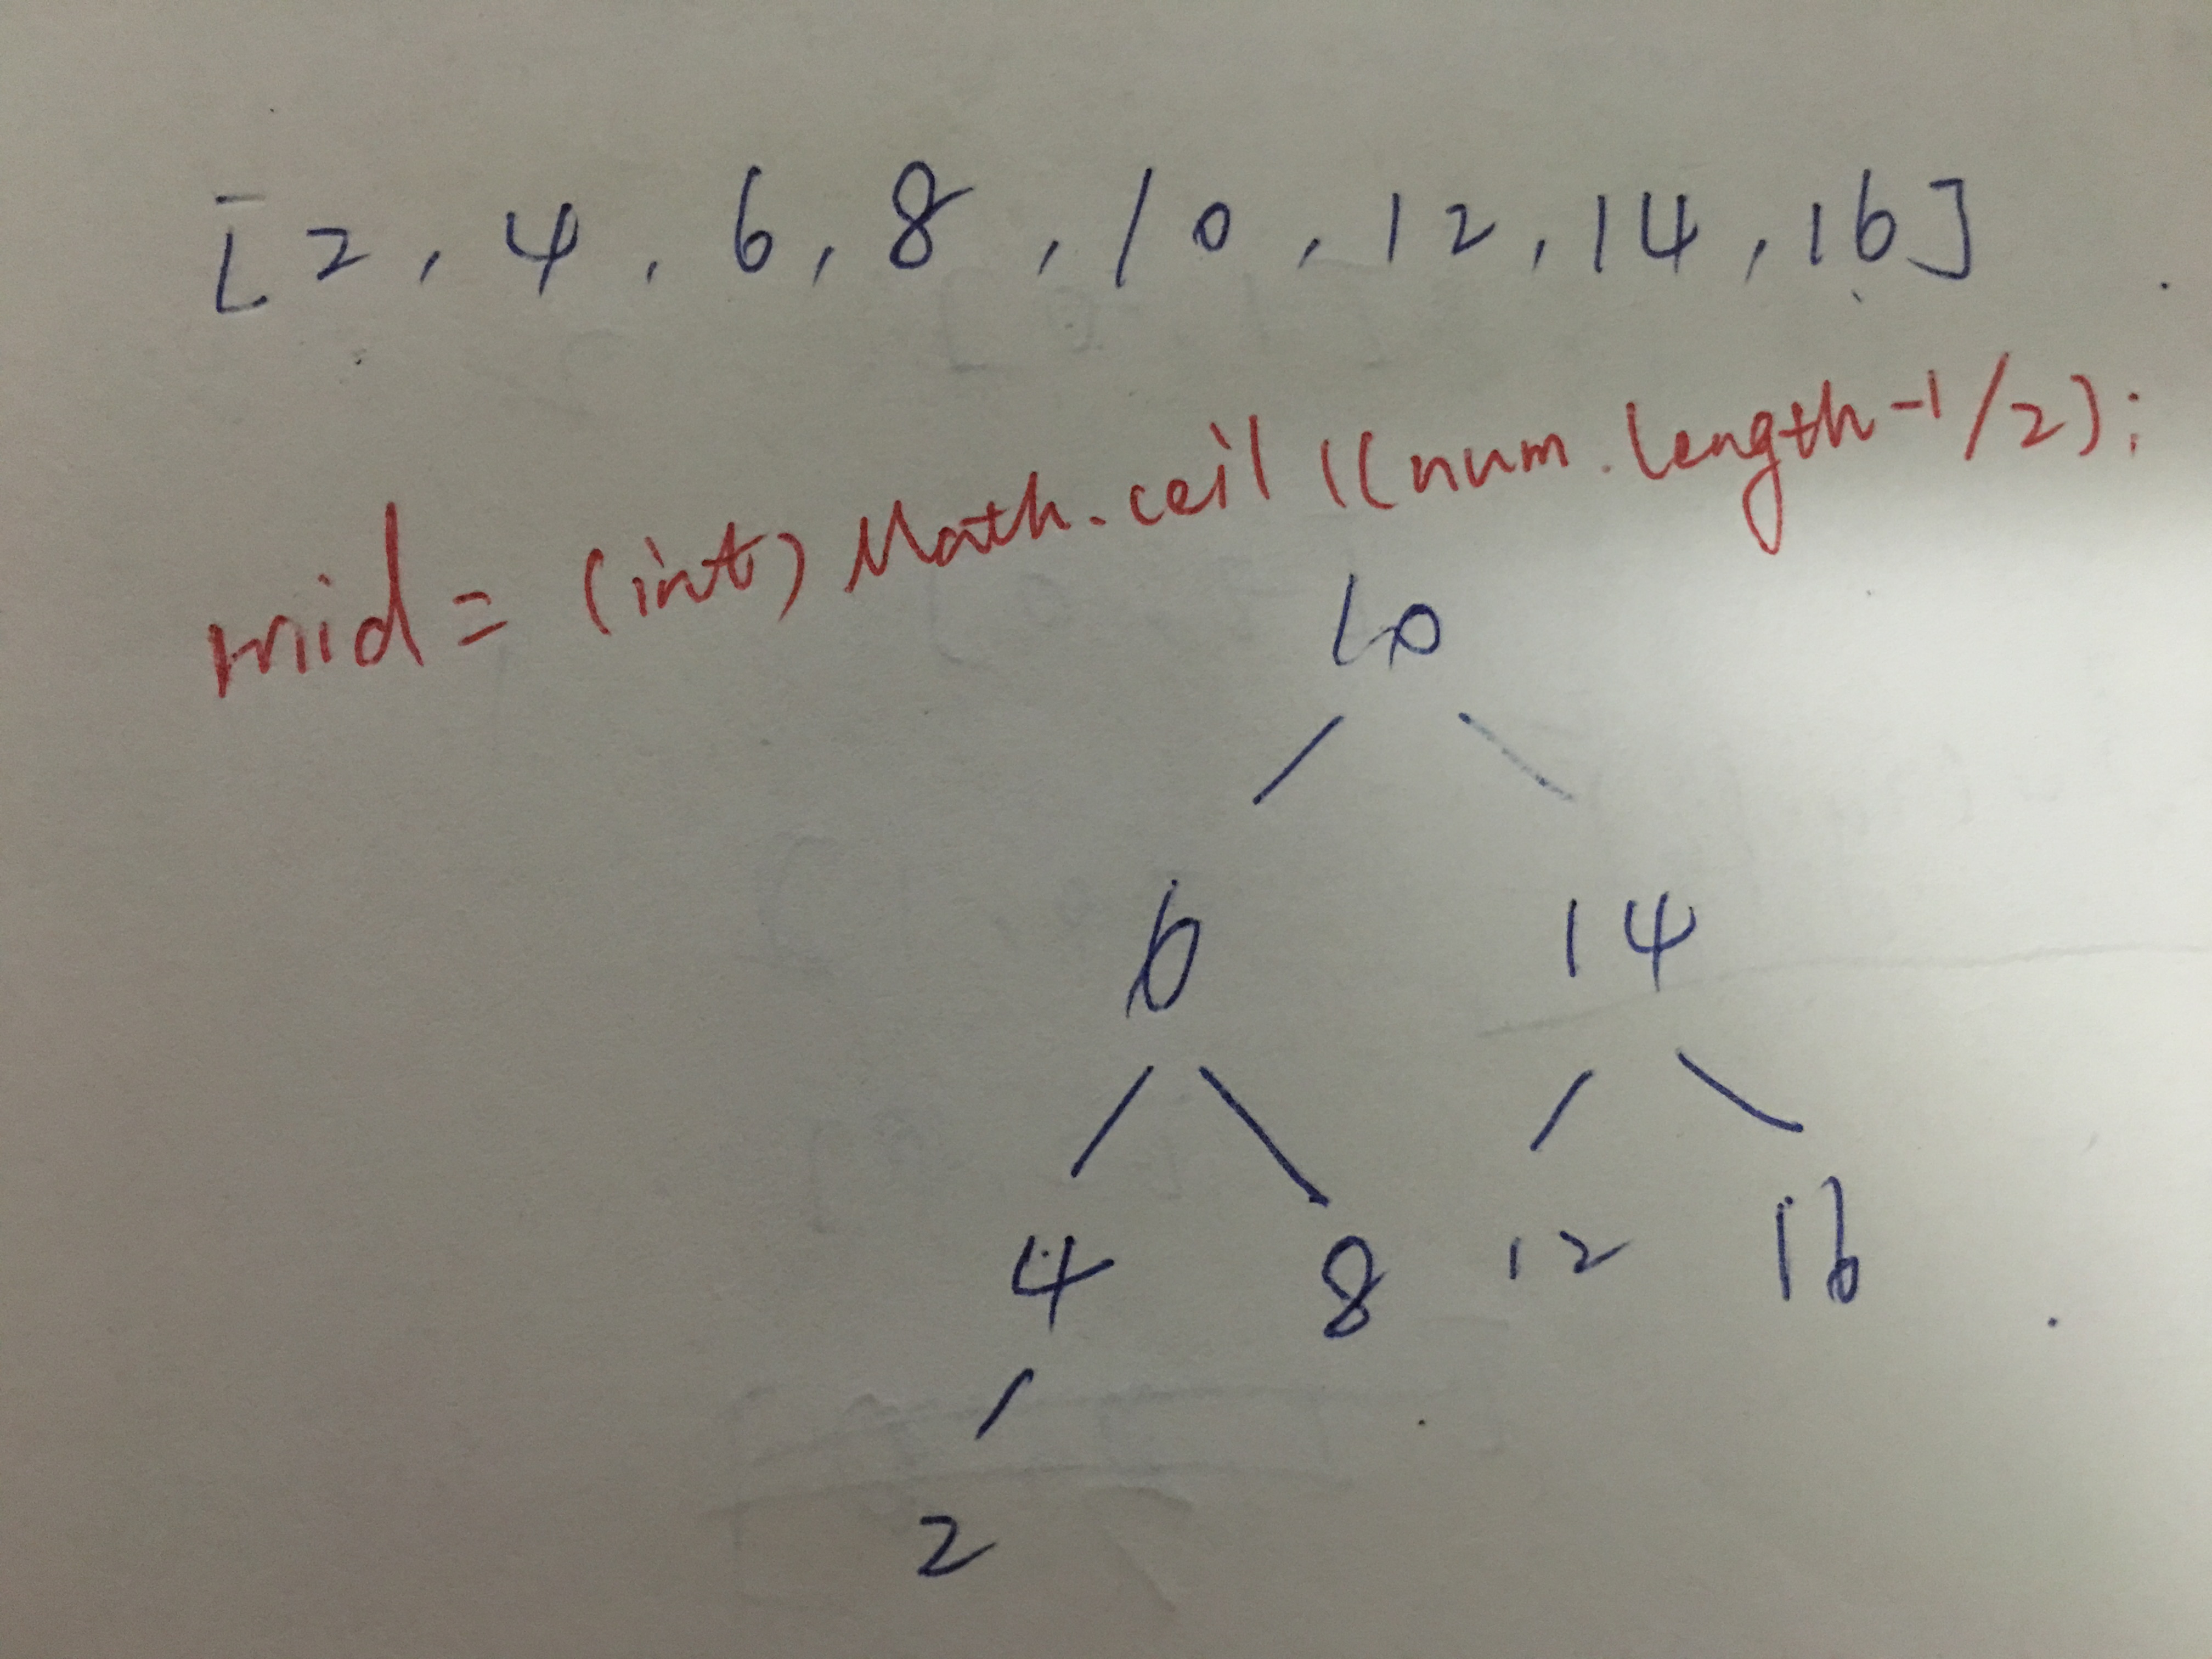 [2, 4, 6, 8, 10, 12, 14, 16]
mid = (int) Math.ceil ((num.length-1/2);
10
6 14
4 8 12 16
2